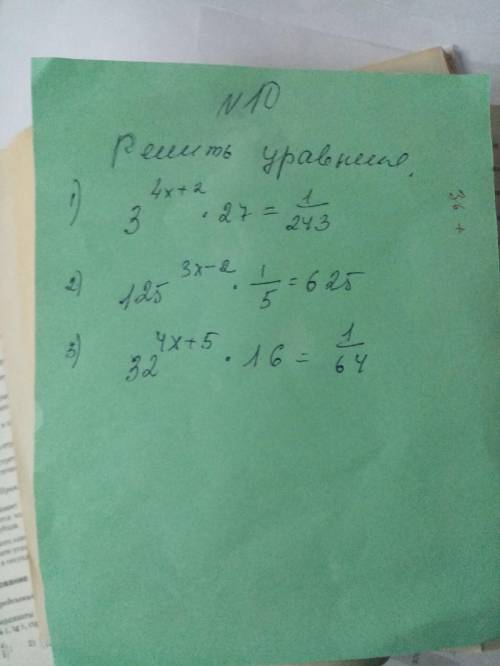 N10
Решить уравнение.
1) 3^{4x+2} · 27 = 1/243
2) 125^{3x-2} · 1/5 = 625
3) 32^{4x+5} · 16 = 1/64
36 +